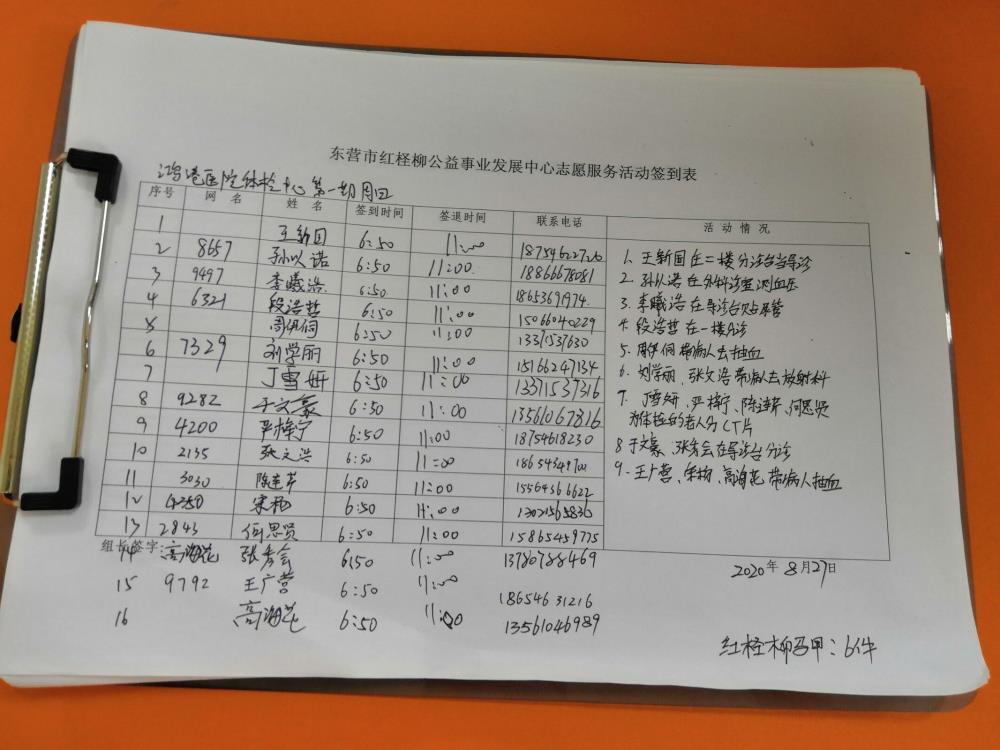 东营市红柽柳公益事业发展中心志愿服务活动签到表
鸿港医院体检中心第一期周四
序号 网名 姓名 签到时间 签退时间 联系电话 活动情况
1 王新国 6:50 11:00 18754622726
2 8657 孙以诺 6:50 11:00 18866678081
3 9497 李曦浩 6:50 11:00 18653691974
4 6321 段浩哲 6:50 11:00 15066040229
5 6:50 11:00 13371537630
6 7329 刘学丽 6:50 11:00 15166247134
7 丁雪妍 6:50 11:00 13371537316
8 9282 于文豪 6:50 11:00 13561067816
9 4200 严梓宁 6:50 11:00 18754618230
10 2135 张文浩 6:50 11:00
11 3030 陈连芹 6:50 11:00 15564366622
12 宋杨 6:50 11:00
13 2843 何思贤 6:50 11:00 15865459775
组长签字: 高海花
14 张秀会 6:50 11:00 13780788469
15 9792 王广营 6:50 11:00 18654631216
16 高海花 6:50 11:00 13561046989
1. 王新国在二楼分诊台当导诊
2. 孙以诺在外科诊室测血压
3. 李曦浩在导诊台贴采管
4. 段浩哲在一楼分诊
5. 带病人去抽血
6. 刘学丽、张文浩带病人去放射科
7. 丁雪妍、严梓宁、陈连芹、何思贤
为体检的老人分CT片
8 于文豪、张秀会在导诊台分诊
9. 王广营、宋杨、高海花带病人抽血
2020年8月27日
红柽柳马甲:6件